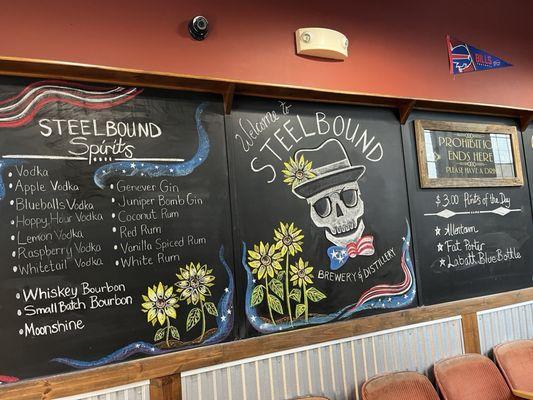 STEELBOUND
Spirits
Vodka
Apple Vodka
Blueballs Vodka
Hoppy Hour Vodka
Lemon Vodka
Raspberry Vodka
Whitetail Vodka
Whiskey Bourbon
Small batch Bourbon
Moonshine
Genever Gin
Juniper Bomb Gin
Coconut Rum
Red Rum
Vanilla Spiced Rum
White Rum
Welcome to
STEELBOUND
BREWERY & DISTILLERY
BILLS
PROHIBITION
ENDS HERE
PLEASE DRINK
$3.00 Pints of the Day
Allentown
Fat Porter
Labatt Blue Bottle